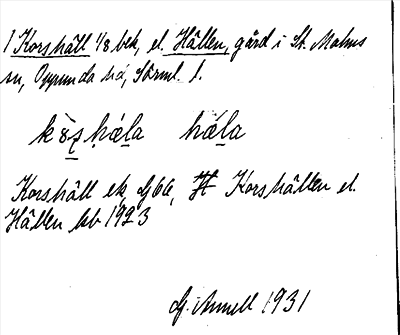 1 Korshäll 1/8 bek, el. Hällen, gård i St. Malms
sn, Oppunda hd, Sörml. l.
hǻla
Korshäll ek Gj 66, Korshällen el.
Hällen kb 1923
G. Annell 1931